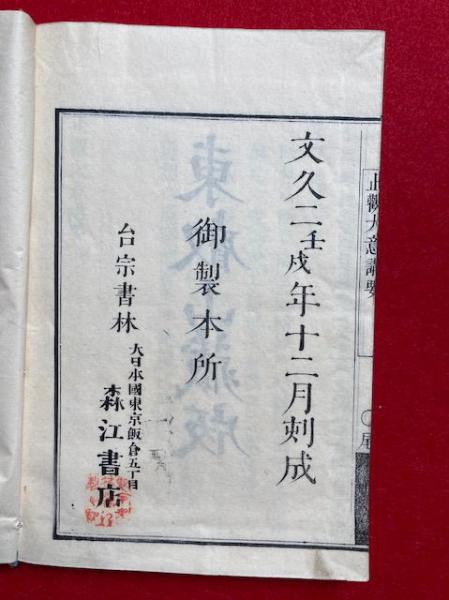 止觀大意講要
文久二壬戌年十二月刻成
御製本所
台宗書林
大日本國東京飯倉五丁目
森江書店